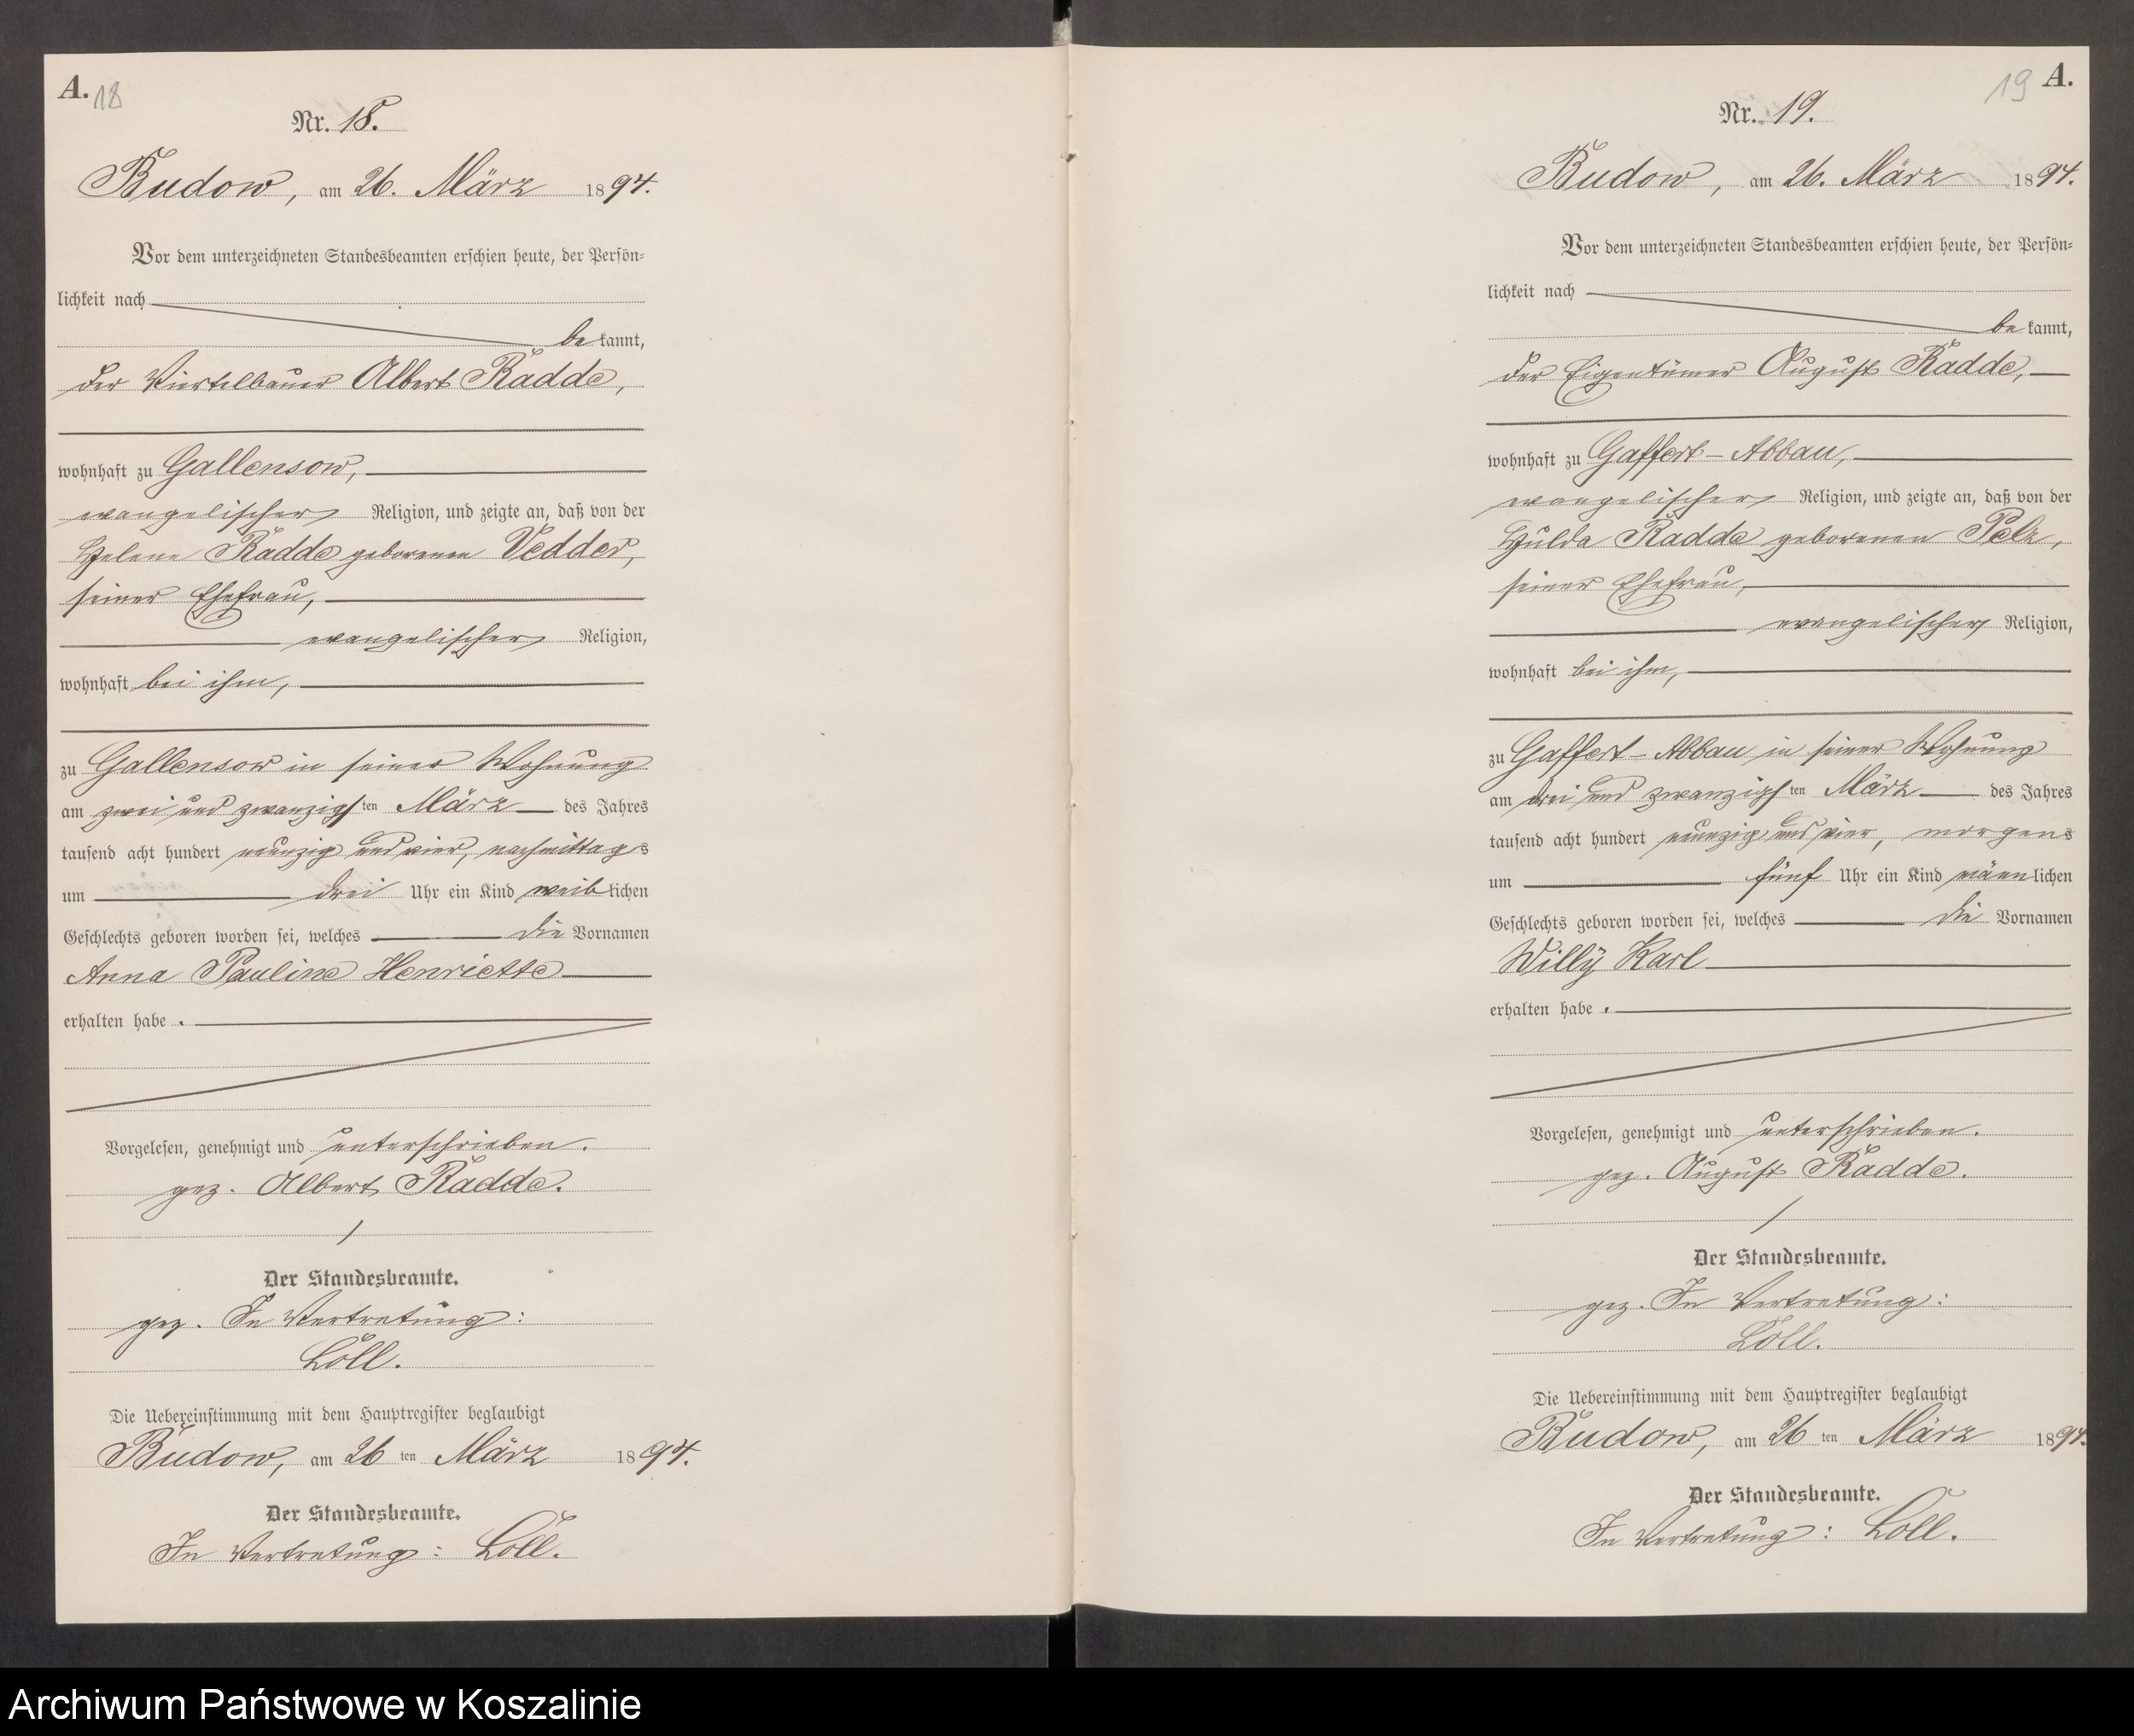 A. 18
Nr. 18.
Budow, am 26. März 1894.
Vor dem unterzeichneten Standesbeamten erschien heute, der Persön-
lichkeit nach
be kannt,
der Viertelbauer Albert Radde,
wohnhaft zu Gallensow,
evangelischer Religion, und zeigte an, daß von der
Helene Radde geborenen Vedder,
seiner Ehefrau,
evangelischer Religion,
wohnhaft bei ihm,
zu Gallensow in seiner Wohnung
am zwei und zwanzigsten März des Jahres
tausend acht hundert neunzig und vier, nachmittags
um drei Uhr ein Kind weiblichen
Geschlechts geboren worden sei, welches die Vornamen
Anna Pauline Henriette
erhalten habe.
Vorgelesen, genehmigt und unterschrieben.
gez. Albert Radde.
Der Standesbeamte.
gez. In Vertretung:
Löll.
Die Uebereinstimmung mit dem Hauptregister beglaubigt
Budow, am 26ten März 1894.
Der Standesbeamte.
In Vertretung: Löll.
19 A.
Nr. 19.
Budow, am 26. März 1894.
Vor dem unterzeichneten Standesbeamten erschien heute, der Persön-
lichkeit nach
be kannt,
der Eigentümer August Radde,
wohnhaft zu Gaffert-Abbau,
evangelischer Religion, und zeigte an, daß von der
Hulda Radde geborenen Pelz,
seiner Ehefrau,
evangelischer Religion,
wohnhaft bei ihm,
zu Gaffert-Abbau in seiner Wohnung
am drei und zwanzigsten März des Jahres
tausend acht hundert neunzig und vier, morgens
um fünf Uhr ein Kind männlichen
Geschlechts geboren worden sei, welches die Vornamen
Willy Karl
erhalten habe.
Vorgelesen, genehmigt und unterschrieben.
gez. August Radde.
Der Standesbeamte.
gez. In Vertretung:
Löll.
Die Uebereinstimmung mit dem Hauptregister beglaubigt
Budow, am 26ten März 1894.
Der Standesbeamte.
In Vertretung: Löll.
Archiwum Państwowe w Koszalinie